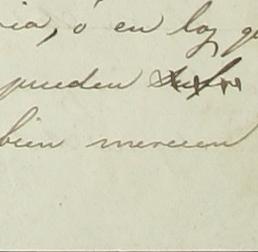 ria, ó en las qu
pueden
bien merecen